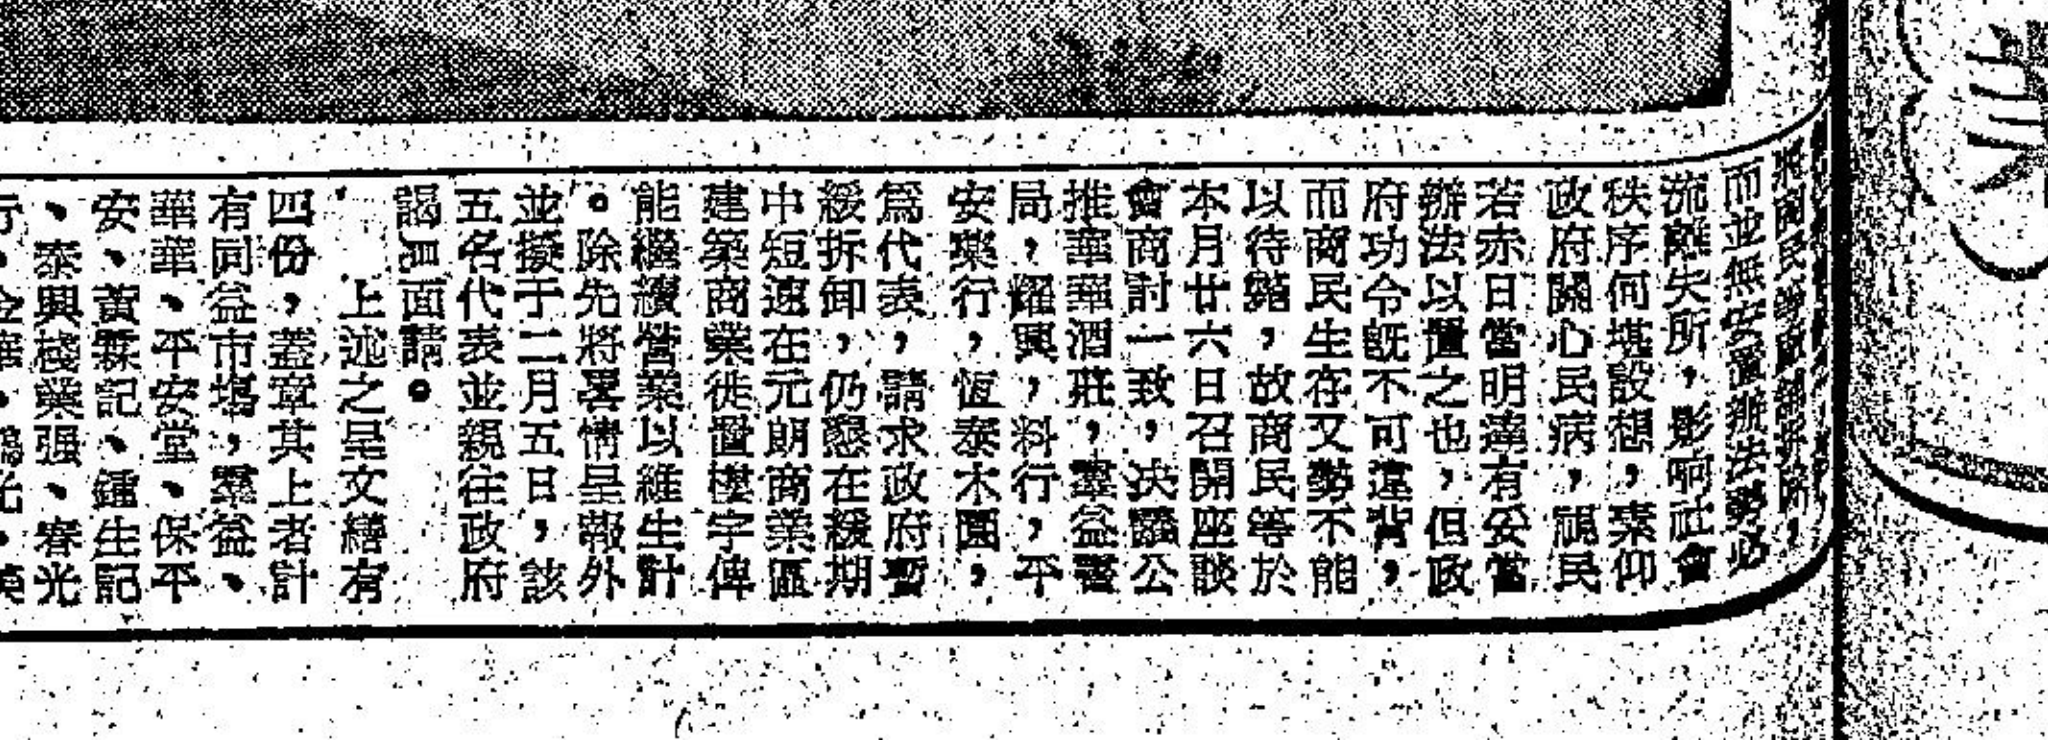 而並無安置辦法勢必
流離失所，影响社會
秩序何堪設想，素仰
政府關心民病，視民
若赤日當明達有妥當
辦法以置之也，但政
府功令旣不可違背，
而商民生存又勢不能
以待斃，故商民等於
本月廿六日召開座談
會商討一致，决議公
推華華酒莊，羣益醬
局，耀興，料行，平
安藥行，恆泰木園，
爲代表，請求政府暫
緩拆卸，仍懇在緩期
中短速在元朗商業區
建築商業徙置樓宇俾
能繼續營業以維生計
。除先將畧情呈報外
並擬于二月五日，該
五名代表並親往政府
謁 面請。
上述之呈文繕有
四份，蓋章其上者計
有同益市場，羣益、
華華、平安堂、保平
安、黃霖記、鍾生記
、泰興棧業强、春光